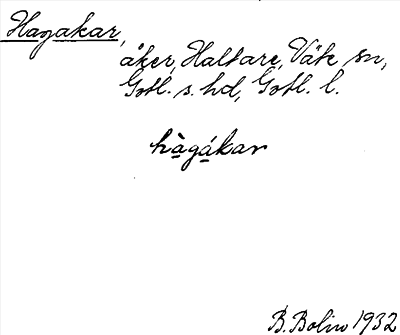 Hagakar,
åker, Hallare, Väte sn,
Gotl. s. hd, Gotl. l.
hàgákar
B. Bolin 1932